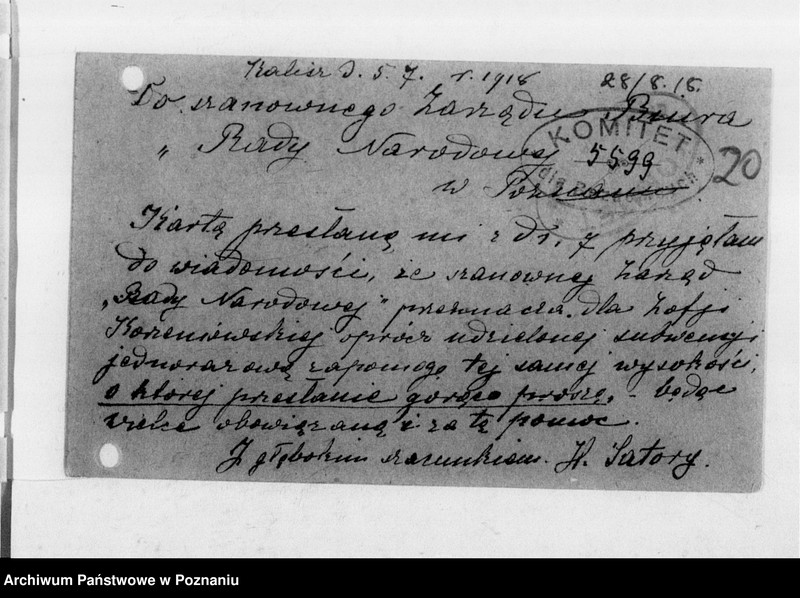 Kalisz d. 5. 7. r. 1918 28/8.18.
Do szanownego Zarządu Biura
„ Rady Narodowej 5599
w Poznaniu. 20
KOMITET
Kartą przesłaną mi z d. 1. 7 przyjęłam
do wiadomości, że szanownej Zarząd
„Rady Narodowej" przeznacza dla Zofji
Korzeniowskiej oprócz udzielonej subwencyi
jednorazową zapomogę tej samej wysokości,
o której przesłanie gorąco proszę, – będąc
wielce obowiązaną i za tę pomoc.
Z głębokim szacunkiem. H. Satory.
Archiwum Państwowe w Poznaniu